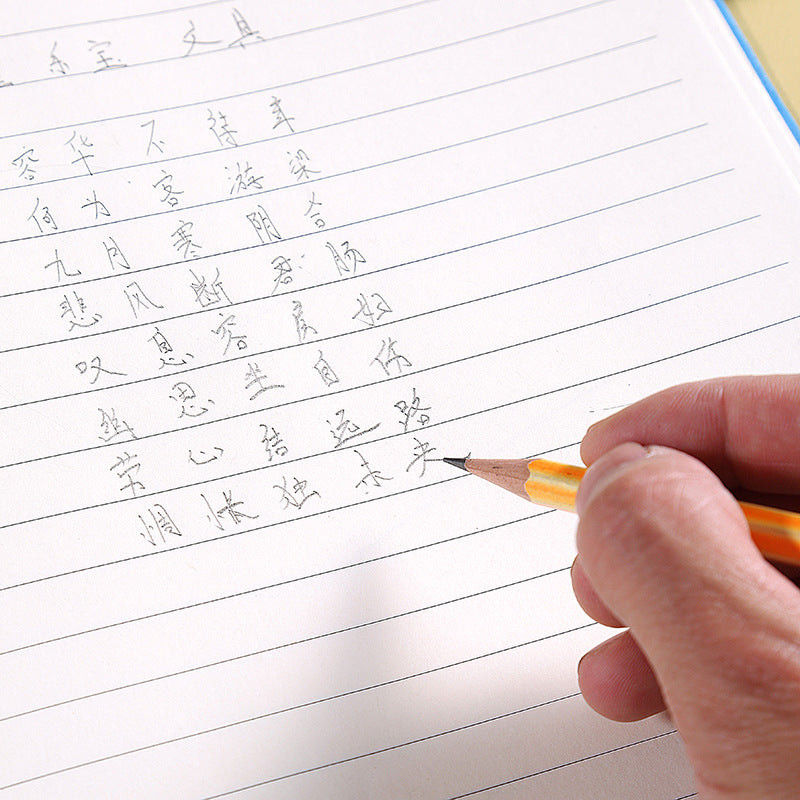 乐宝 文具
容华不待年
何为客游梁
九月寒阴合
悲风断君肠
叹息容房妇
幽思坐自伤
劳心结远路
惆怅独未央